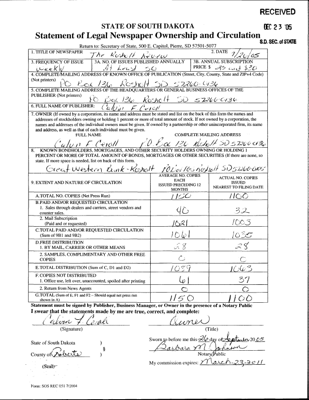 RECEIVED
DEC 23 '05
S.D. SEC. of STATE
STATE OF SOUTH DAKOTA
Statement of Legal Newspaper Ownership and Circulation
Return to: Secretary of State, 500 E. Capitol, Pierre, SD 57501-5077
1. TITLE OF NEWSPAPER The Rosholt Review
2. DATE 9/26/05
3. FREQUENCY OF ISSUE weekly
3A. NO. OF ISSUES PUBLISHED ANNUALLY
3B. ANNUAL SUBSCRIPTION PRICE $
4. COMPLETE MAILING ADDRESS OF KNOWN OFFICE OF PUBLICATION (Street, City, County, State and ZIP+4 Code)
(Not printers) PO Box 136 Rosholt SD 57260-0136
5. COMPLETE MAILING ADDRESS OF THE HEADQUARTERS OR GENERAL BUSINESS OFFICES OF THE
PUBLISHER (Not printers)
PO Box 136 Rosholt SD 57260-0136
6. FULL NAME OF PUBLISHER:
7. OWNER (If owned by a corporation, its name and address must be stated and also immediately the names and
addresses of stockholders owning or holding 1 percent or more of total amount of stock. If not owned by a corporation, the
names and addresses of the individual owners must be given. If owned by a partnership or other unincorporated firm, its name
and address, as well as that of each individual must be given.
FULL NAME
COMPLETE MAILING ADDRESS
PO Box 136 Rosholt SD 57260-0136
8. KNOWN BONDHOLDERS, MORTGAGES, AND OTHER SECURITY HOLDERS OWNING OR HOLDING 1
PERCENT OR MORE OF TOTAL AMOUNT OF BONDS, MORTGAGES OR OTHER SECURITIES (If there are none, so
state. If more space is needed, list on back of this form.
Great Western Bank-Rosholt
9. EXTENT AND NATURE OF CIRCULATION
AVERAGE NO. COPIES
EACH
ISSUED PRECEDING 12
MONTHS
ACTUAL NO. COPIES
ISSUED
NEAREST TO FILING DATE
A. TOTAL NO. COPIES (Net Press Run) 1150 1100
B. PAID AND/OR REQUESTED CIRCULATION
1. Sales through dealers and carriers, street vendors and
counter sales. 40 32
2. Mail Subscription
(Paid and or requested) 1021 1003
C. TOTAL PAID AND/OR REQUESTED CIRCULATION
(Sum of 9B1 and 9B2) 1061 1035
D. FREE DISTRIBUTION
1. BY MAIL, CARRIER OR OTHER MEANS 28 28
2. SAMPLES, COMPLIMENTARY AND OTHER FREE
COPIES 0 0
E. TOTAL DISTRIBUTION (Sum of C, D1 and D2) 1089 1063
F. COPIES NOT DISTRIBUTED
1. Office use, left over, unaccounted, spoiled after printing 61 37
2. Return from News Agents 0 0
G. TOTAL (Sum of E, F1 and F2 - Should equal net press run
shown in A) 1150 1100
Statement must be signed by Publisher, Business Manager, or Owner in the presence of a Notary Public
I swear that the statements made by me are true, correct, and complete:
Owner
(Signature) (Title)
State of South Dakota )
County of Roberts ) §
Sworn to before me this 26 day of September 2005
Barbara M Johnson
Notary Public
(Seal) My commission expires: March 23, 2011
Form: SOS REC 051 7/2004